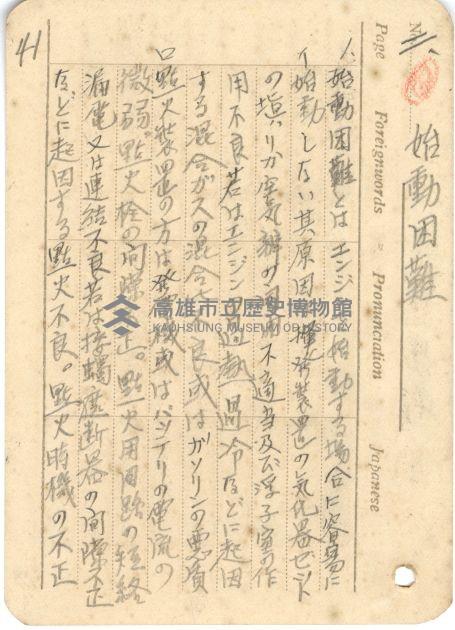 二、
始動困難
No.
Page Foreignwords " Pronunciation Japanese
1、始動困難とはエンジンを始動する場合に容易に
イ始動しない其原因は揮発装置の気化器ゼット
の塡りか空気弁の適当及び浮子室の作
用不良若はエンジンの過熱過冷などに起因
する混合ガスの混合不良或はガソリンの悪質
ロ點火装置の方は発電機或はバッテリの電流の
微弱。點火栓の間隙不正。點火用回路の短絡
漏電又は連結不良若は接觸遮断器の間隙不正
などに起因する點火不良。點火時機の不正
41
高雄市立歷史博物館
KAOHSIUNG MUSEUM OF HISTORY